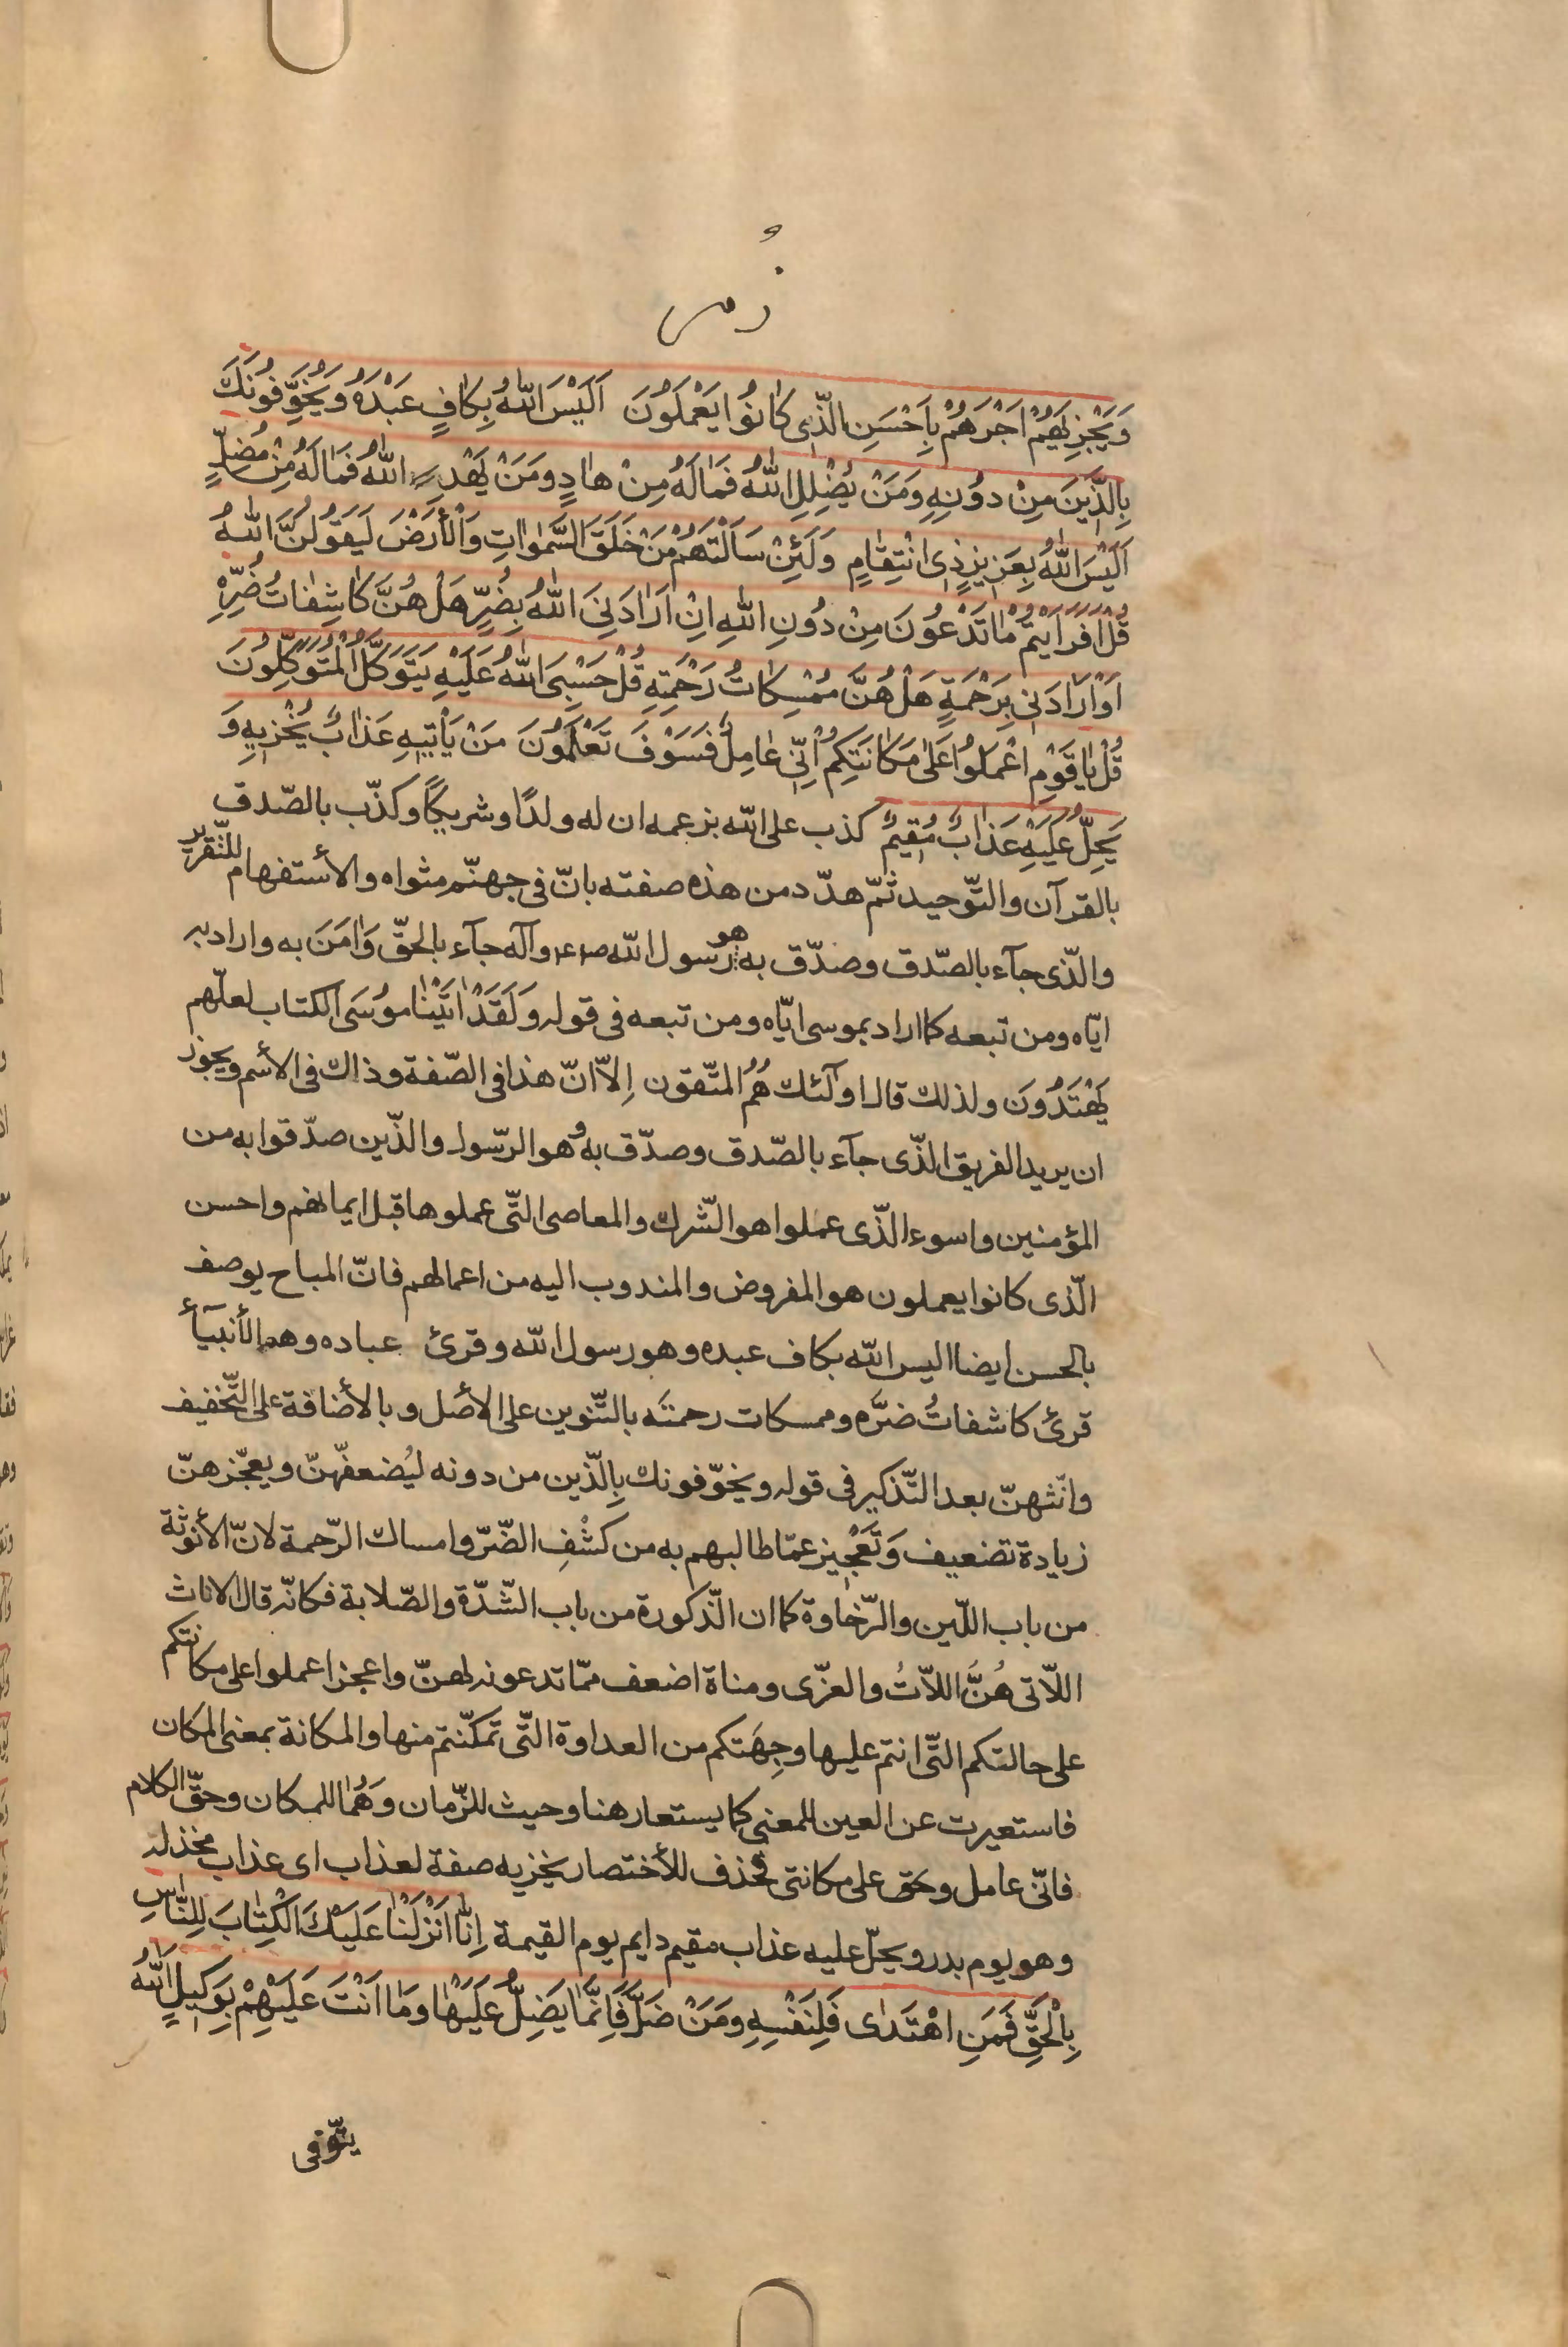 و
زمر
وَيَجْزِيَهُمْ اَجْرَهُمْ بِاَحْسَنِ الَّذِى كَانُوا يَعْمَلُونَ اَلَيْسَ اللّٰهُ بِكَافٍ عَبْدَهُ وَيُخَوِّفُونَكَ
بِالَّذِينَ مِنْ دُونِهِ وَمَنْ يُضْلِلِ اللّٰهُ فَمَا لَهُ مِنْ هَادٍ وَمَنْ يَهْدِ اللّٰهُ فَمَا لَهُ مِنْ مُضِلٍّ
اَلَيْسَ اللّٰهُ بِعَزِيزٍ ذِى انْتِقَامٍ وَلَئِنْ سَاَلْتَهُمْ مَنْ خَلَقَ السَّمٰوَاتِ وَالْأَرْضَ لَيَقُولُنَّ اللّٰهُ
قُلْ اَفَرَاَيْتُمْ مَا تَدْعُونَ مِنْ دُونِ اللّٰهِ اِنْ اَرَادَنِىَ اللّٰهُ بِضُرٍّ هَلْ هُنَّ كَاشِفَاتُ ضُرِّهِ
اَوْ اَرَادَنِى بِرَحْمَةٍ هَلْ هُنَّ مُمْسِكَاتُ رَحْمَتِهِ قُلْ حَسْبِىَ اللّٰهُ عَلَيْهِ يَتَوَكَّلُ الْمُتَوَكِّلُونَ
قُلْ يَا قَوْمِ اعْمَلُوا عَلٰى مَكَانَتِكُمْ اِنِّى عَامِلٌ فَسَوْفَ تَعْلَمُونَ مَنْ يَأْتِيهِ عَذَابٌ يُخْزِيهِ وَ
يَحِلُّ عَلَيْهِ عَذَابٌ مُقِيمٌ كذب على اللّه بزعمه ان له ولدًا وشريكًا وكذّب بالصّدق
بالقرآن والتّوحيد ثمّ هدّد من هذه صفته بانّ فى جهنّم مثواه والأستفهام للتّقرير
والّذى جآء بالصّدق وصدّق به هو رسول اللّه ص ع وآله جآء بالحقّ وَاٰمَنَ به واراد به
ايّاه ومن تبعه كما اراد بموسى ايّاه ومن تبعه فى قوله وَلَقَدْ اٰتَيْنَا مُوسَى الكتاب لعلّهم
يَهْتَدُونَ ولذلك قال اولٓئك هُمُ المتّقون اِلاّ انّ هذا فى الصّفة وذاك فى الأسم ويجوز
ان يريد الفريق الّذى جآء بالصّدق وصدّق به وهو الرّسول والّذين صدّقوا به من
المؤمنين واسوء الّذى عملوا هو الشّرك والمعاصى الّتى عملوها قبل ايمانهم واحسن
الّذى كانوا يعملون هو المفروض والمندوب اليه من اعمالهم فانّ المباح يوصف
بالحسن ايضا اليس اللّه بكاف عبده وهو رسول اللّه وقرئ عباده وهم الأنبيآء
قرئ كاشفاتٌ ضرَّه وممسكات رحمتَه بالتّنوين على الأصل وبالأضافة على التّخفيف
وانّثهنّ بعد التّذكير فى قوله ويخوّفونك بِالّذين من دونه ليُضعفّهنّ ويعجّزهنّ
زيادة تضعيف وَتَعْجِيز عمّا طالبهم به من كَشْفِ الضّرّ وامساك الرّحمة لانّ الأنوثة
من باب اللّين والرّخاوة كما ان الذّكورة من باب الشّدّة والصّلابة فكانّه قال الاناث
اللّاتى هُنَّ اللاّتُ والعزّى ومناة اضعف ممّا تدعونه لهنّ واعجز اعملوا على مكانتكم
على حالتكم الّتى انتم عليها وجِهَتكم من العداوة الّتى تمكّنتم منها والمكانة بمعنى المكان
فاستعيرت عن العين للمعنى كما يستعار هنا وحيث للزّمان وَهُمَا للمكان وحقّ الكلام
فانّى عامل وحق على مكانتى فحذف للأختصار يخزيه صفة لعذاب اى عذاب مخذ له
وهو يوم بدر ويحلّ عليه عذاب مقيم دايم يوم القيمة اِنَّا اَنْزَلْنَا عَلَيْكَ الْكِتَابَ لِلنَّاسِ
بِالْحَقِّ فَمَنِ اهْتَدٰى فَلِنَفْسِهِ وَمَنْ ضَلَّ فَاِنَّمَا يَضِلُّ عَلَيْهَا وَمَا اَنْتَ عَلَيْهِمْ بِوَكِيلٍ اَللّٰهُ
يتوفى